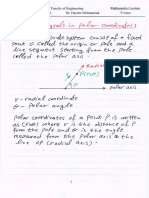 Faculty of Engineering
Mathematics Lecture
Dr. Hayder Mohammed
2nd Class
in polar coordinates
system consist of a fixed
point O called the origin or pole and a
line segment starting from the pole
called the polar axis.
P(r,θ)
r
θ
r - radial coordinate
θ - Polar angle
Polar coordinates of a point P is written
as (r,θ) where r is the distance of P
from the pole and θ is the angle
measured from the polar axis at the
line OP (radial axis).
1